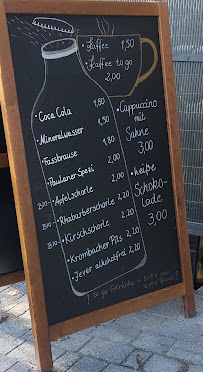 • Kaffee 1,50
• Kaffee to go
2,00
• Coca Cola 1,80
• Mineralwasser 1,50
• Fassbrause 1,80
• Paulaner Spezi 2,00
BIO- • Apfelschorle 2,20
BIO- • Rhabarberschorle 2,20
BIO- • Kirschschorle 2,20
• Krombacher Pils 2,20
• Jever alkoholfrei 2,20
• Cappuccino
mit
Sahne
3,00
• heiße
Schoko-
lade
3,00
! to go Getränke :